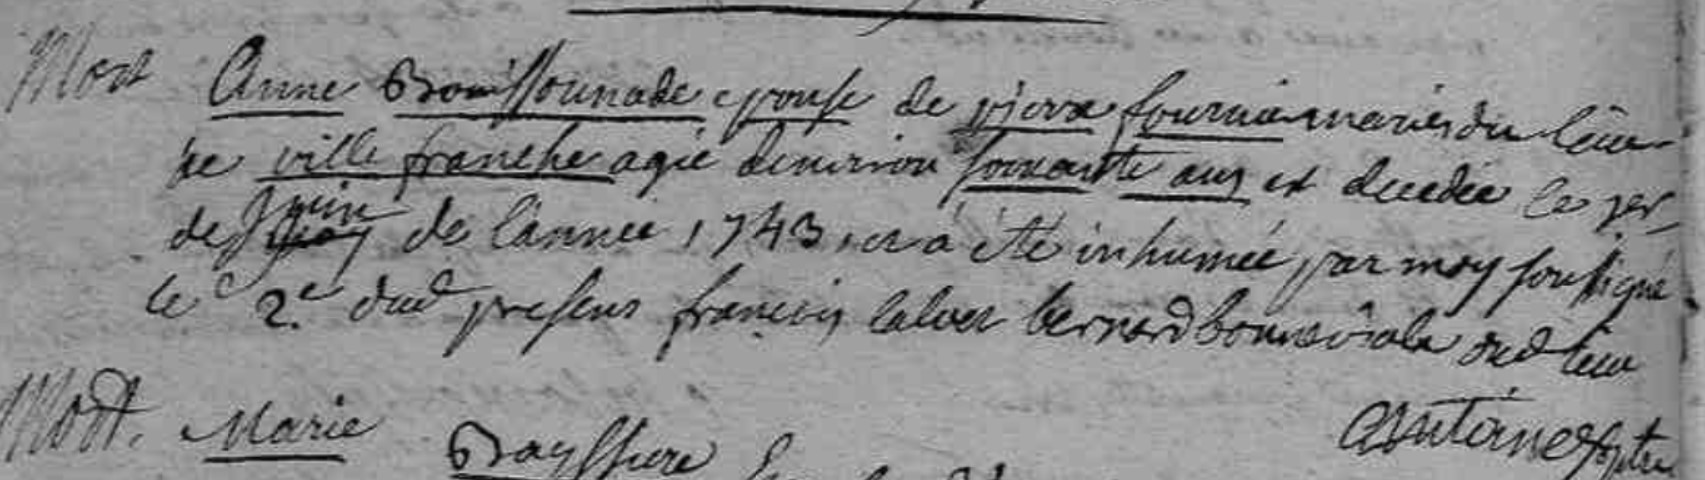 Mort Anne Bouissounade epouse de pierre fournie maries du lieu
de ville franche agée denviron soixante ans est decedée le per
de Juin de l'année 1743, et a été inhumée par moy soussigné
le 2e dud presens francois calvet bernard bonnevialle dud lieu
Antoine ptre
Mort. Marie Bayssiere